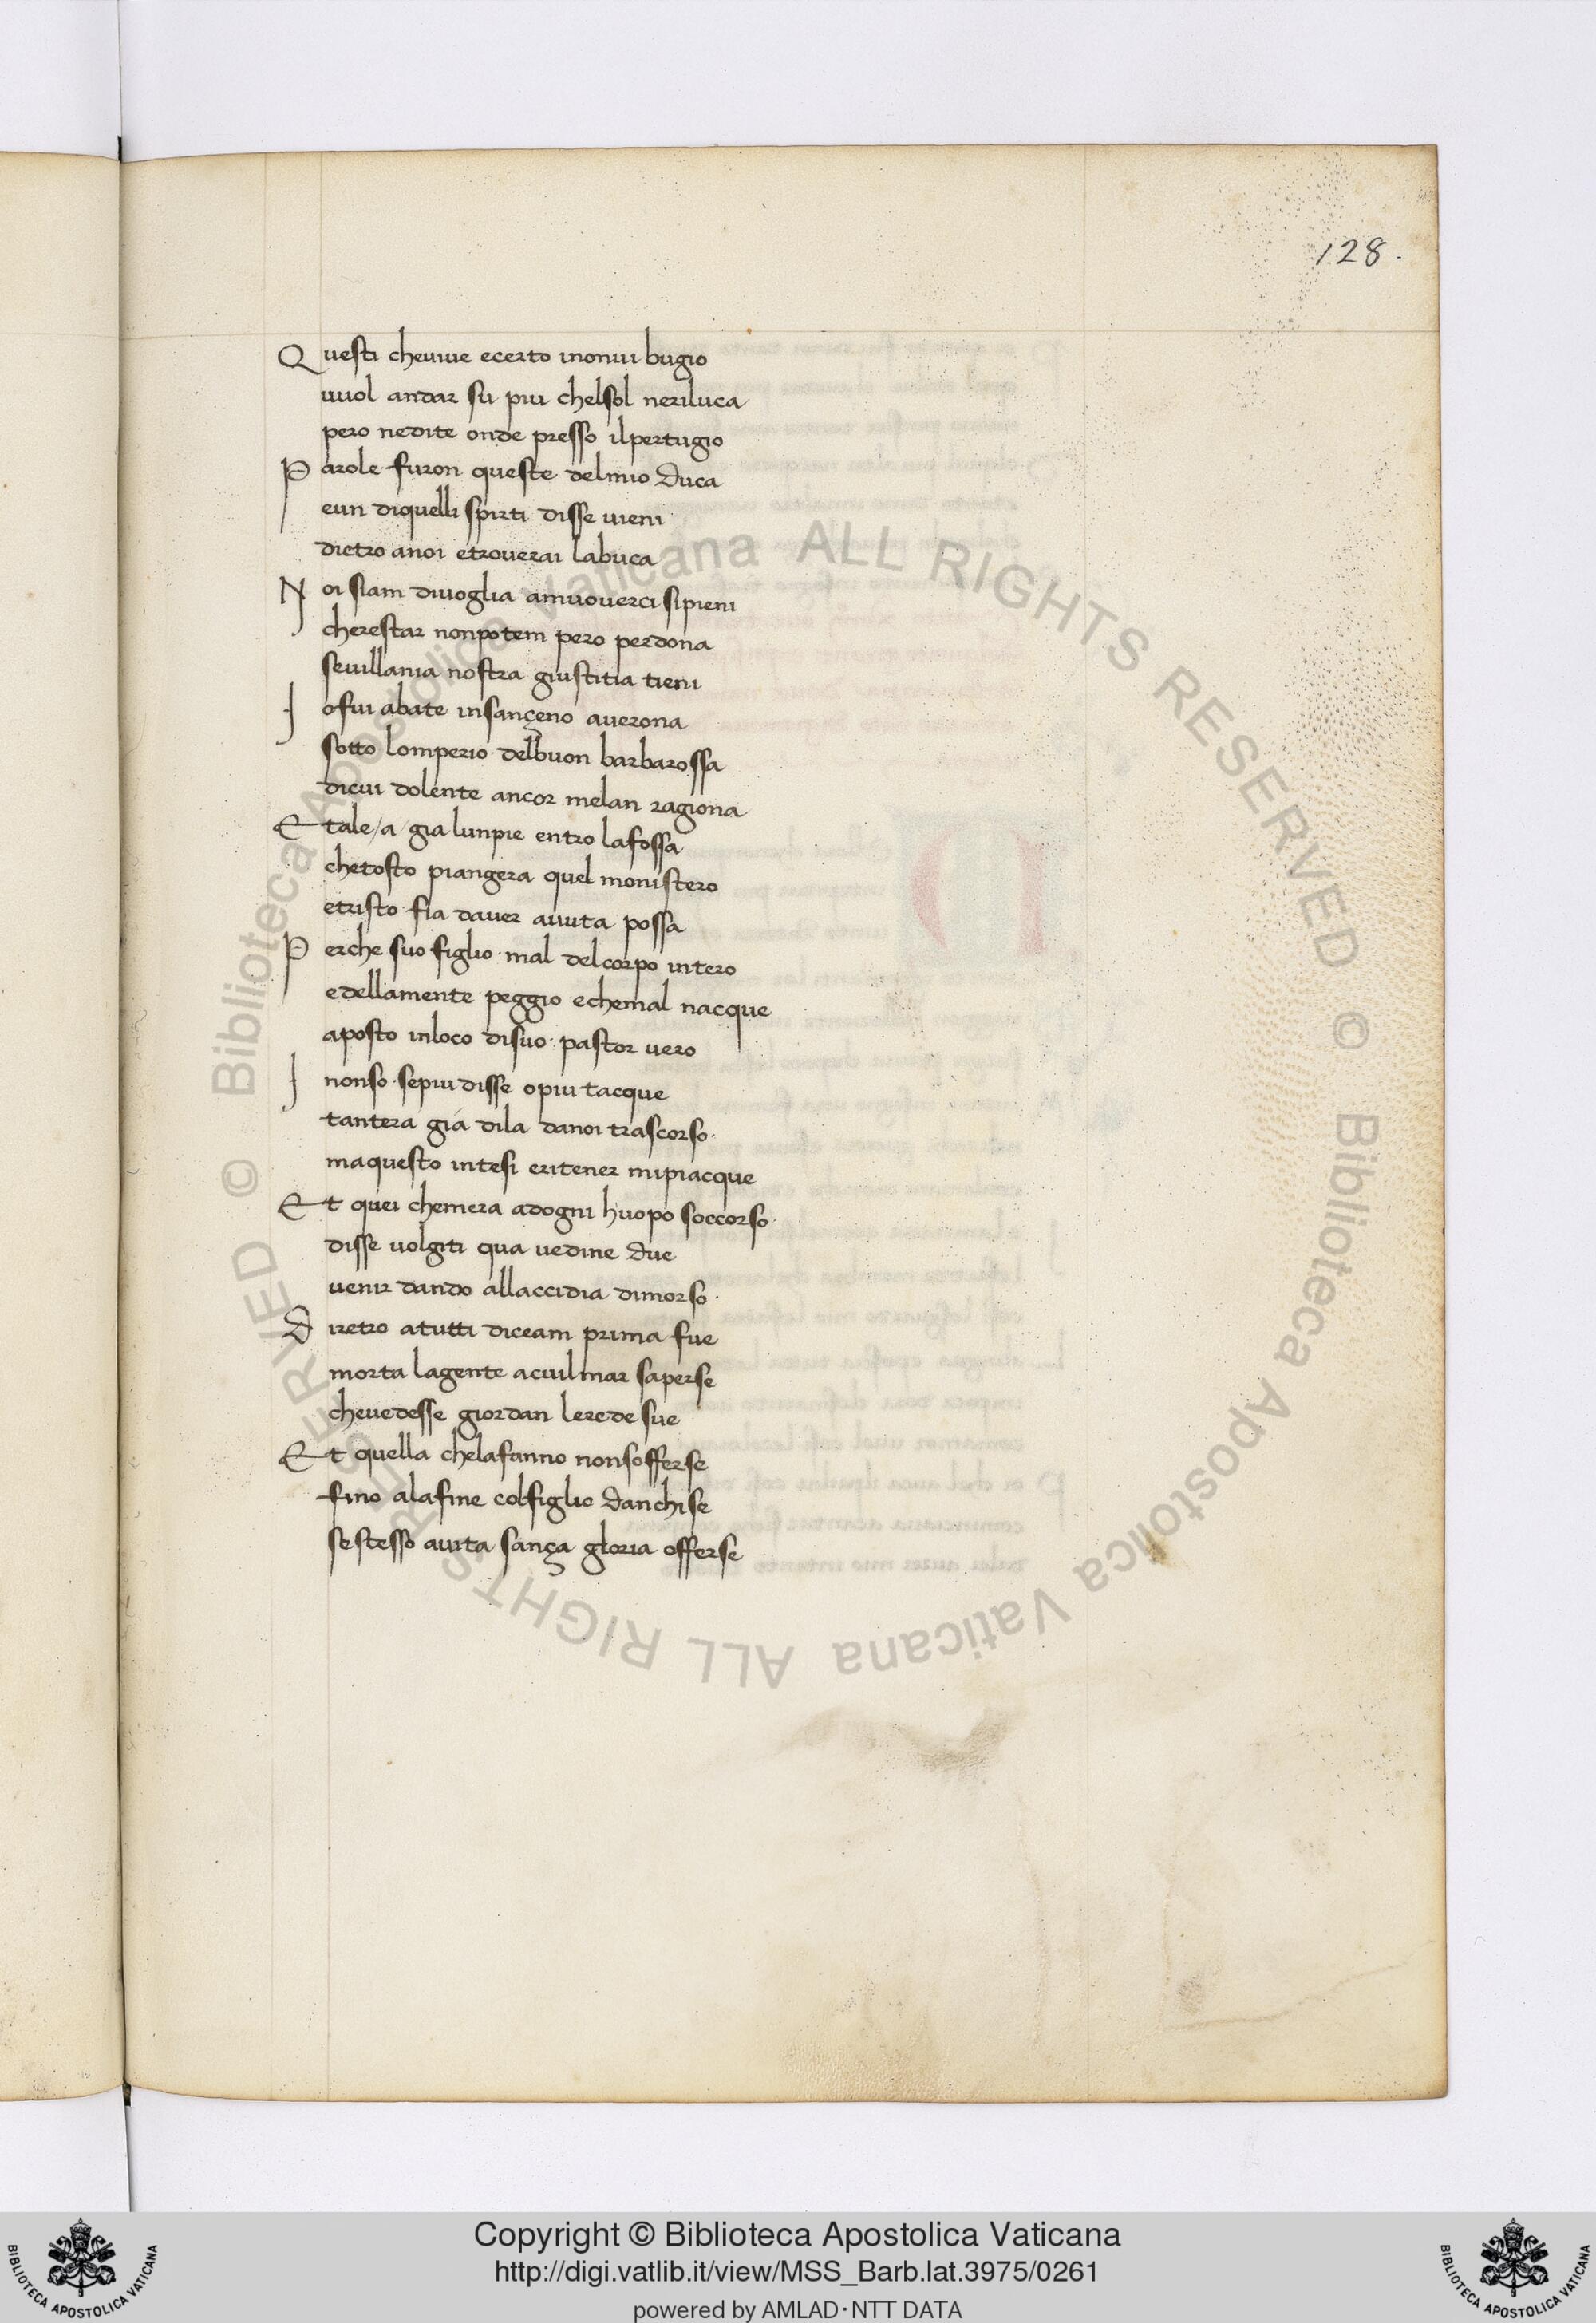 128.
Questi cheuiue ecerto inonui bugio
uuol andar su piu chelsol neriluca
pero nedite onde presso ilpertugio
Parole furon queste delmio duca
eun diquelli spirti disse uieni
dietro anoi etrouerai labuca
Noi siam diuoglia amuouerci sipieni
cherestar nonpotem pero perdona
seuillania nostra giustitia tieni
Iofui abate insançeno auerona
sotto lomperio delbuon barbarossa
dicui dolente ancor melan ragiona
Etale/a/gia lunpie entro lafossa
chetosto piangera quel monistero
etristo fia dauer auuta possa
Perche suo figlio mal delcorpo intero
edellamente peggio echemal nacque
aposto inloco disuo pastor uero
I nonso·sepiu disse opiu tacque
tantera già dila danoi trascorso·
maquesto intesi eritener mipiacque
Et quei chemera adogni huopo soccorso·
disse uolgiti qua uedine due
uenir dando allaccidia dimorso·
Diretro atutti diceam prima fue
morta lagente acuilmar saperse
cheuedesse giordan lerede sue
Et quella chelafanno nonsofferse
fino alafine colfiglio danchise
sestesso auita sança gloria offerse
© Biblioteca Apostolica Vaticana ALL RIGHTS RESERVED © Biblioteca Apostolica Vaticana ALL RIGHTS RESERVED
Copyright © Biblioteca Apostolica Vaticana
http://digi.vatlib.it/view/MSS_Barb.lat.3975/0261
powered by AMLAD·NTT DATA
BIBLIOTECA APOSTOLICA VATICANA
BIBLIOTECA APOSTOLICA VATICANA